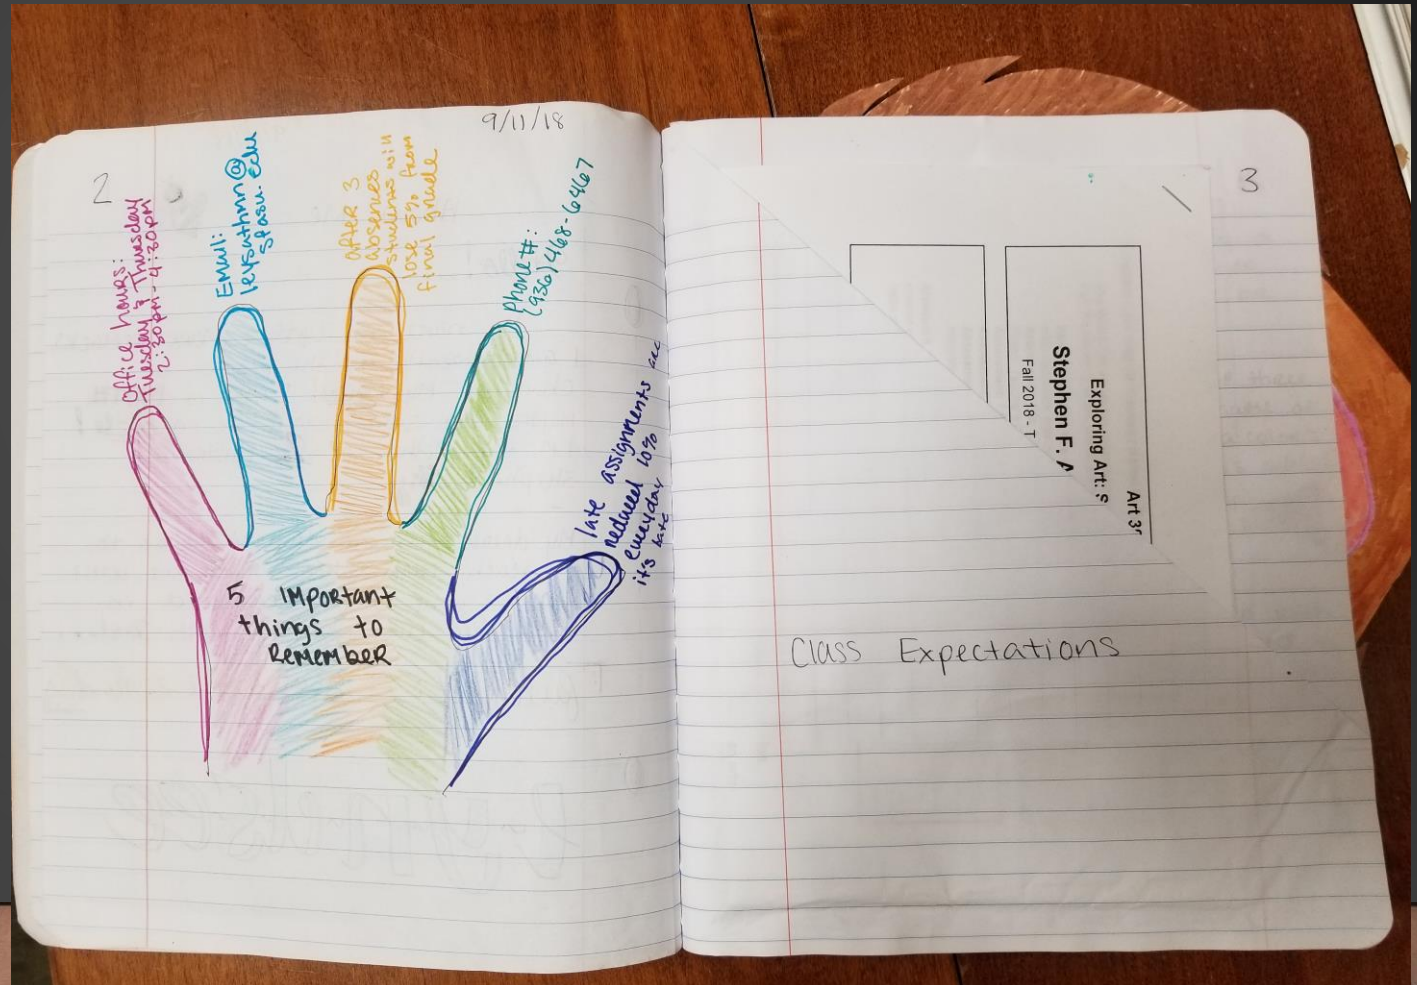 9/11/18
2
Office hours:
Tuesday & Thursday
2:30pm - 4:30pm
Email:
@
sfasu.edu
after 3
absences
students will
lose 5% from
final grade
Phone #:
(936) 468-6467
late assignments are
reduced 10%
everyday
it's late
5 Important
things to
Remember
3
Art 3
Exploring Art: S
Stephen F. A
Fall 2018 - T
Class Expectations